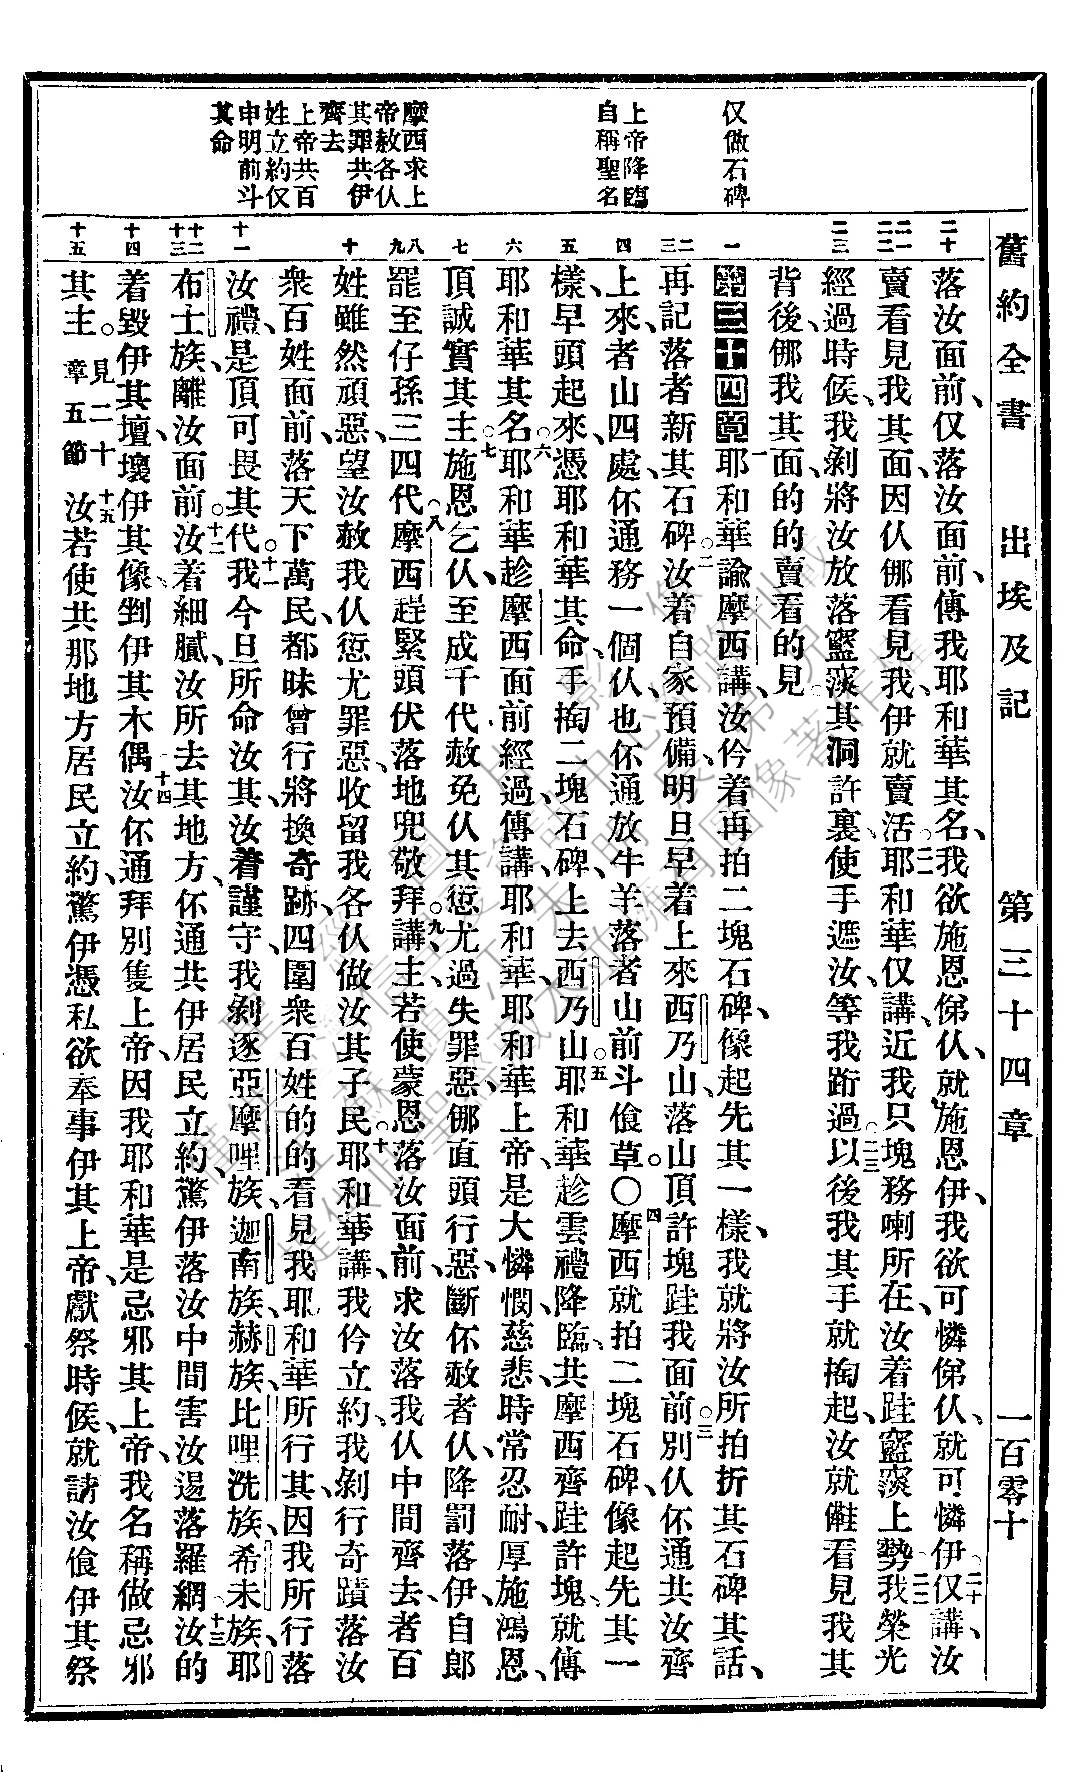 舊約全書 出埃及記 第三十四章 一百零十
仅做石碑
上帝降臨
自稱聖名
摩西求上
帝赦各仈
其罪共伊
齊去
上帝共百
姓立約仅
申明前斗
其命
二十
二一
二二
二三
一
二
三
四
五
六
七
八
九
十
十一
十二
十三
十四
十五
落汝面前、仅落汝面前、傳我耶和華其名、我欲施恩俤仈、就施恩伊、我欲可憐俤仈、就可憐伊、○二十仅講、汝
賣看見我其面、因仈𰁜看見我、伊就賣活、○二一耶和華仅講、近我只塊務喇所在、汝着跬䆲㴱上勢、二二我榮光
經過時候、我剝將汝放落䆲㴱其洞許裏、使手遮汝、等我跔過以後、○二三我其手就掏起、汝就𠆧看見我其
背後、𰁜我其面、的的賣看的見。
第三十四章 一耶和華諭摩西講、汝仱着再拍二塊石碑、像起先其一樣、我就將汝所拍折其石碑其話、
再記落者新其石碑、○二汝着自家預備、明旦早着上來西乃山、落山頂許塊跬我面前、○三別仈伓通共汝齊
上來、者山四處、伓通務一個仈、也伓通放牛羊落者山前斗偹草。○四摩西就拍二塊石碑、像起先其一
樣、早頭起來、憑耶和華其命、手掏二塊石碑、上去西乃山。○五耶和華趁雲禮降臨、共摩西齊跬許塊、就傳
耶和華其名、○六耶和華趁摩西面前經過、傳講、耶和華、耶和華上帝、是大憐憫慈悲、時常忍耐、厚施鴻恩、
頂誠實其主、○七施恩乞仈、至成千代、赦免仈其愆尤過失罪惡、𰁜直頭行惡、斷伓赦者仈、降罰落伊自郎
罷至仔孫三四代、○八摩西趕緊頭伏落地兜敬拜、○九講、主、若使蒙恩落汝面前、求汝落我仈中間齊去、者百
姓雖然頑惡、望汝赦我仈愆尤罪惡、收留我各仈做汝其子民、○十耶和華講、我仱立約、我剝行奇蹟落汝
衆百姓面前、落天下萬民都昧曾行將換奇跡、四圍衆百姓的的看見我耶和華所行其、因我所行落
汝禮、是頂可畏其代。○十一我今旦所命汝其、汝着謹守、我剝逐亞摩哩族、迦南族、赫族、比哩洗族、希未族、耶
布士族、離汝面前、○十二汝着細膩、汝所去其地方、伓通共伊居民立約、驚伊落汝中間害汝、逿落羅網、十三汝的
着毀伊其壇、壞伊其像、剉伊其木偶、十四汝伓通拜別隻上帝、因我耶和華是忌邪其上帝、我名稱做忌邪
其主。見二十章五節 十五汝若使共那地方居民立約、驚伊憑私欲奉事伊其上帝、獻祭時候、就請汝偹伊其祭